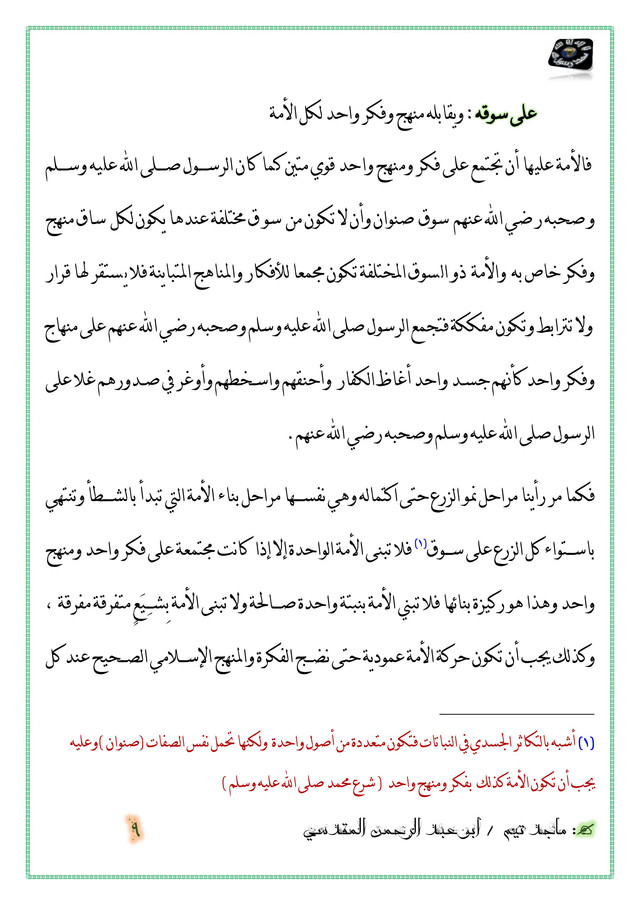 على سوقه : ويقابله منهج وفكر واحد لكل الأمة
فالأمة عليها أن تجتمع على فكر ومنهج واحد قوي متين كما كان الرسول صلى الله عليه وسلم
وصحبه رضي الله عنهم سوق صنوان وأن لا تكون من سوق مختلفة عندها يكون لكل ساق منهج
وفكر خاص به والأمة ذو السوق المختلفة تكون مجمعا للأفكار والمناهج المتباينة فلا يستقر لها قرار
ولا تترابط وتكون مفككة فتجمع الرسول صلى الله عليه وسلم وصحبه رضي الله عنهم على منهاج
وفكر واحد كأنهم جسد واحد أغاظ الكفار وأحنقهم واسخطهم وأوغر في صدورهم غلا على
الرسول صلى الله عليه وسلم وصحبه رضي الله عنهم .
فكما مر رأينا مراحل نمو الزرع حتى اكتماله وهي نفسها مراحل بناء الأمة التي تبدأ بالشطأ وتنتهي
باستواء كل الزرع على سوق(١) فلا تبنى الأمة الواحدة إلا إذا كانت مجتمعة على فكر واحد ومنهج
واحد وهذا هو ركيزة بنائها فلا تبني الأمة بنبتة واحدة صالحة ولا تبنى الأمة بِشِيَعٍ متفرقة مفرقة ،
وكذلك يجب أن تكون حركة الأمة عمودية حتى نضج الفكرة والمنهج الإسلامي الصحيح عند كل
(١) أشبه بالتكاثر الجسدي في النباتات فتكون متعددة من أصول واحدة ولكنها تحمل نفس الصفات (صنوان) وعليه
يجب أن تكون الأمة كذلك بفكر ومنهج واحد ( شرع محمد صلى الله عليه وسلم )
: ماجد تيم / أبن عبد الرحمن المقدسي
٩